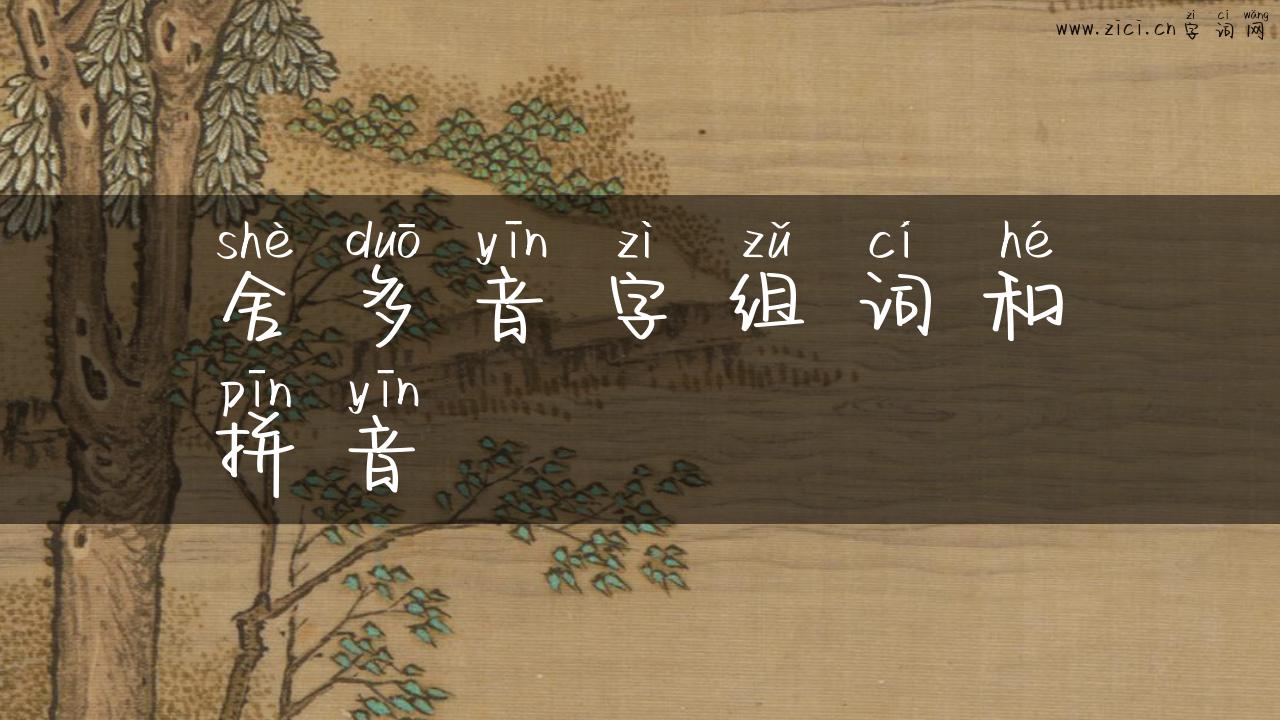 zì cí wǎng
www.zici.cn 字词网
shè duō yīn zì zǔ cí hé
舍多音字组词和
pīn yīn
拼音